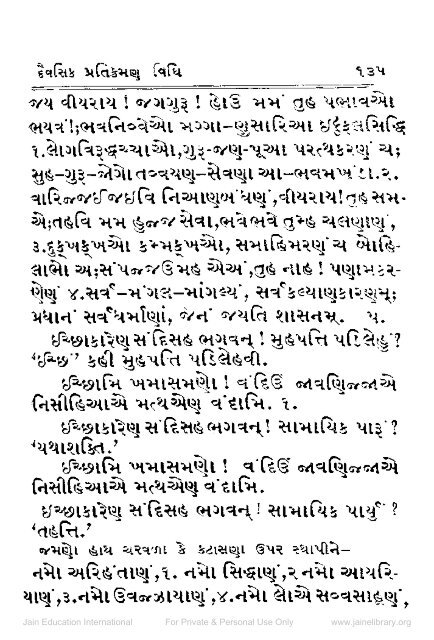 દૈવસિક પ્રતિક્રમણ વિધિ ૧૩૫
જય વીયરાય ! જગગુરૂ ! હોઉ મમં તુહ પભાવઓ
ભયવં!;ભવનિવ્વેઓ મગ્ગા-ણુસારિઆ ઇટ્ઠફલસિદ્ધિ
૧.લોગવિરૂદ્ધચ્ચાઓ,ગુરૂ-જણ-પૂઆ પરત્થકરણં ચ;
સુહ-ગુરૂ-જોગો તવ્વયણ-સેવણા આ-ભવમખંડા.૨.
વારિજ્જઈ જઈવિ નિઆણબંધણં,વીયરાય!તુહ સમ-
એ;તહવિ મમ હુજ્જ સેવા,ભવેભવે તુમ્હ ચલણાણં,
૩.દુક્ખક્ખઓ કમ્મક્ખઓ, સમાહિમરણં ચ બોહિ-
લાભો અ;સંપજ્જઉ મહ એઅં,તુહ નાહ ! પણામકર-
ણેણં ૪.સર્વ-મંગલ-માંગલ્યં, સર્વકલ્યાણકારણમ્;
પ્રધાનં સર્વધર્માણાં, જૈનં જયતિ શાસનમ્. ૫.
ઇચ્છાકારેણ સંદિસહ ભગવન્ ! મુહપત્તિ પડિલેહું?
‘ઇચ્છં’ કહી મુહપત્તિ પડિલેહવી.
ઇચ્છામિ ખમાસમણો ! વંદિઉં જાવણિજ્જાએ
નિસીહિઆએ મત્થએણ વંદામિ. ૧.
ઇચ્છાકારેણ સંદિસહ ભગવન્! સામાયિક પારૂં ?
‘યથાશક્તિ.’
ઇચ્છામિ ખમાસમણો ! વંદિઉં જાવણિજ્જાએ
નિસીહિઆએ મત્થએણ વંદામિ.
ઇચ્છાકારેણ સંદિસહ ભગવન્ ! સામાયિક પાર્યું ?
‘તહત્તિ.’
જમણો હાથ ચરવળા કે કટાસણા ઉપર સ્થાપીને-
નમો અરિહંતાણં,૧. નમો સિદ્ધાણં,૨ નમો આયરિ-
યાણં,૩.નમો ઉવજ્ઝાયાણં,૪.નમો લોએ સવ્વસાહૂણં,
Jain Education International For Private & Personal Use Only www.jainelibrary.org